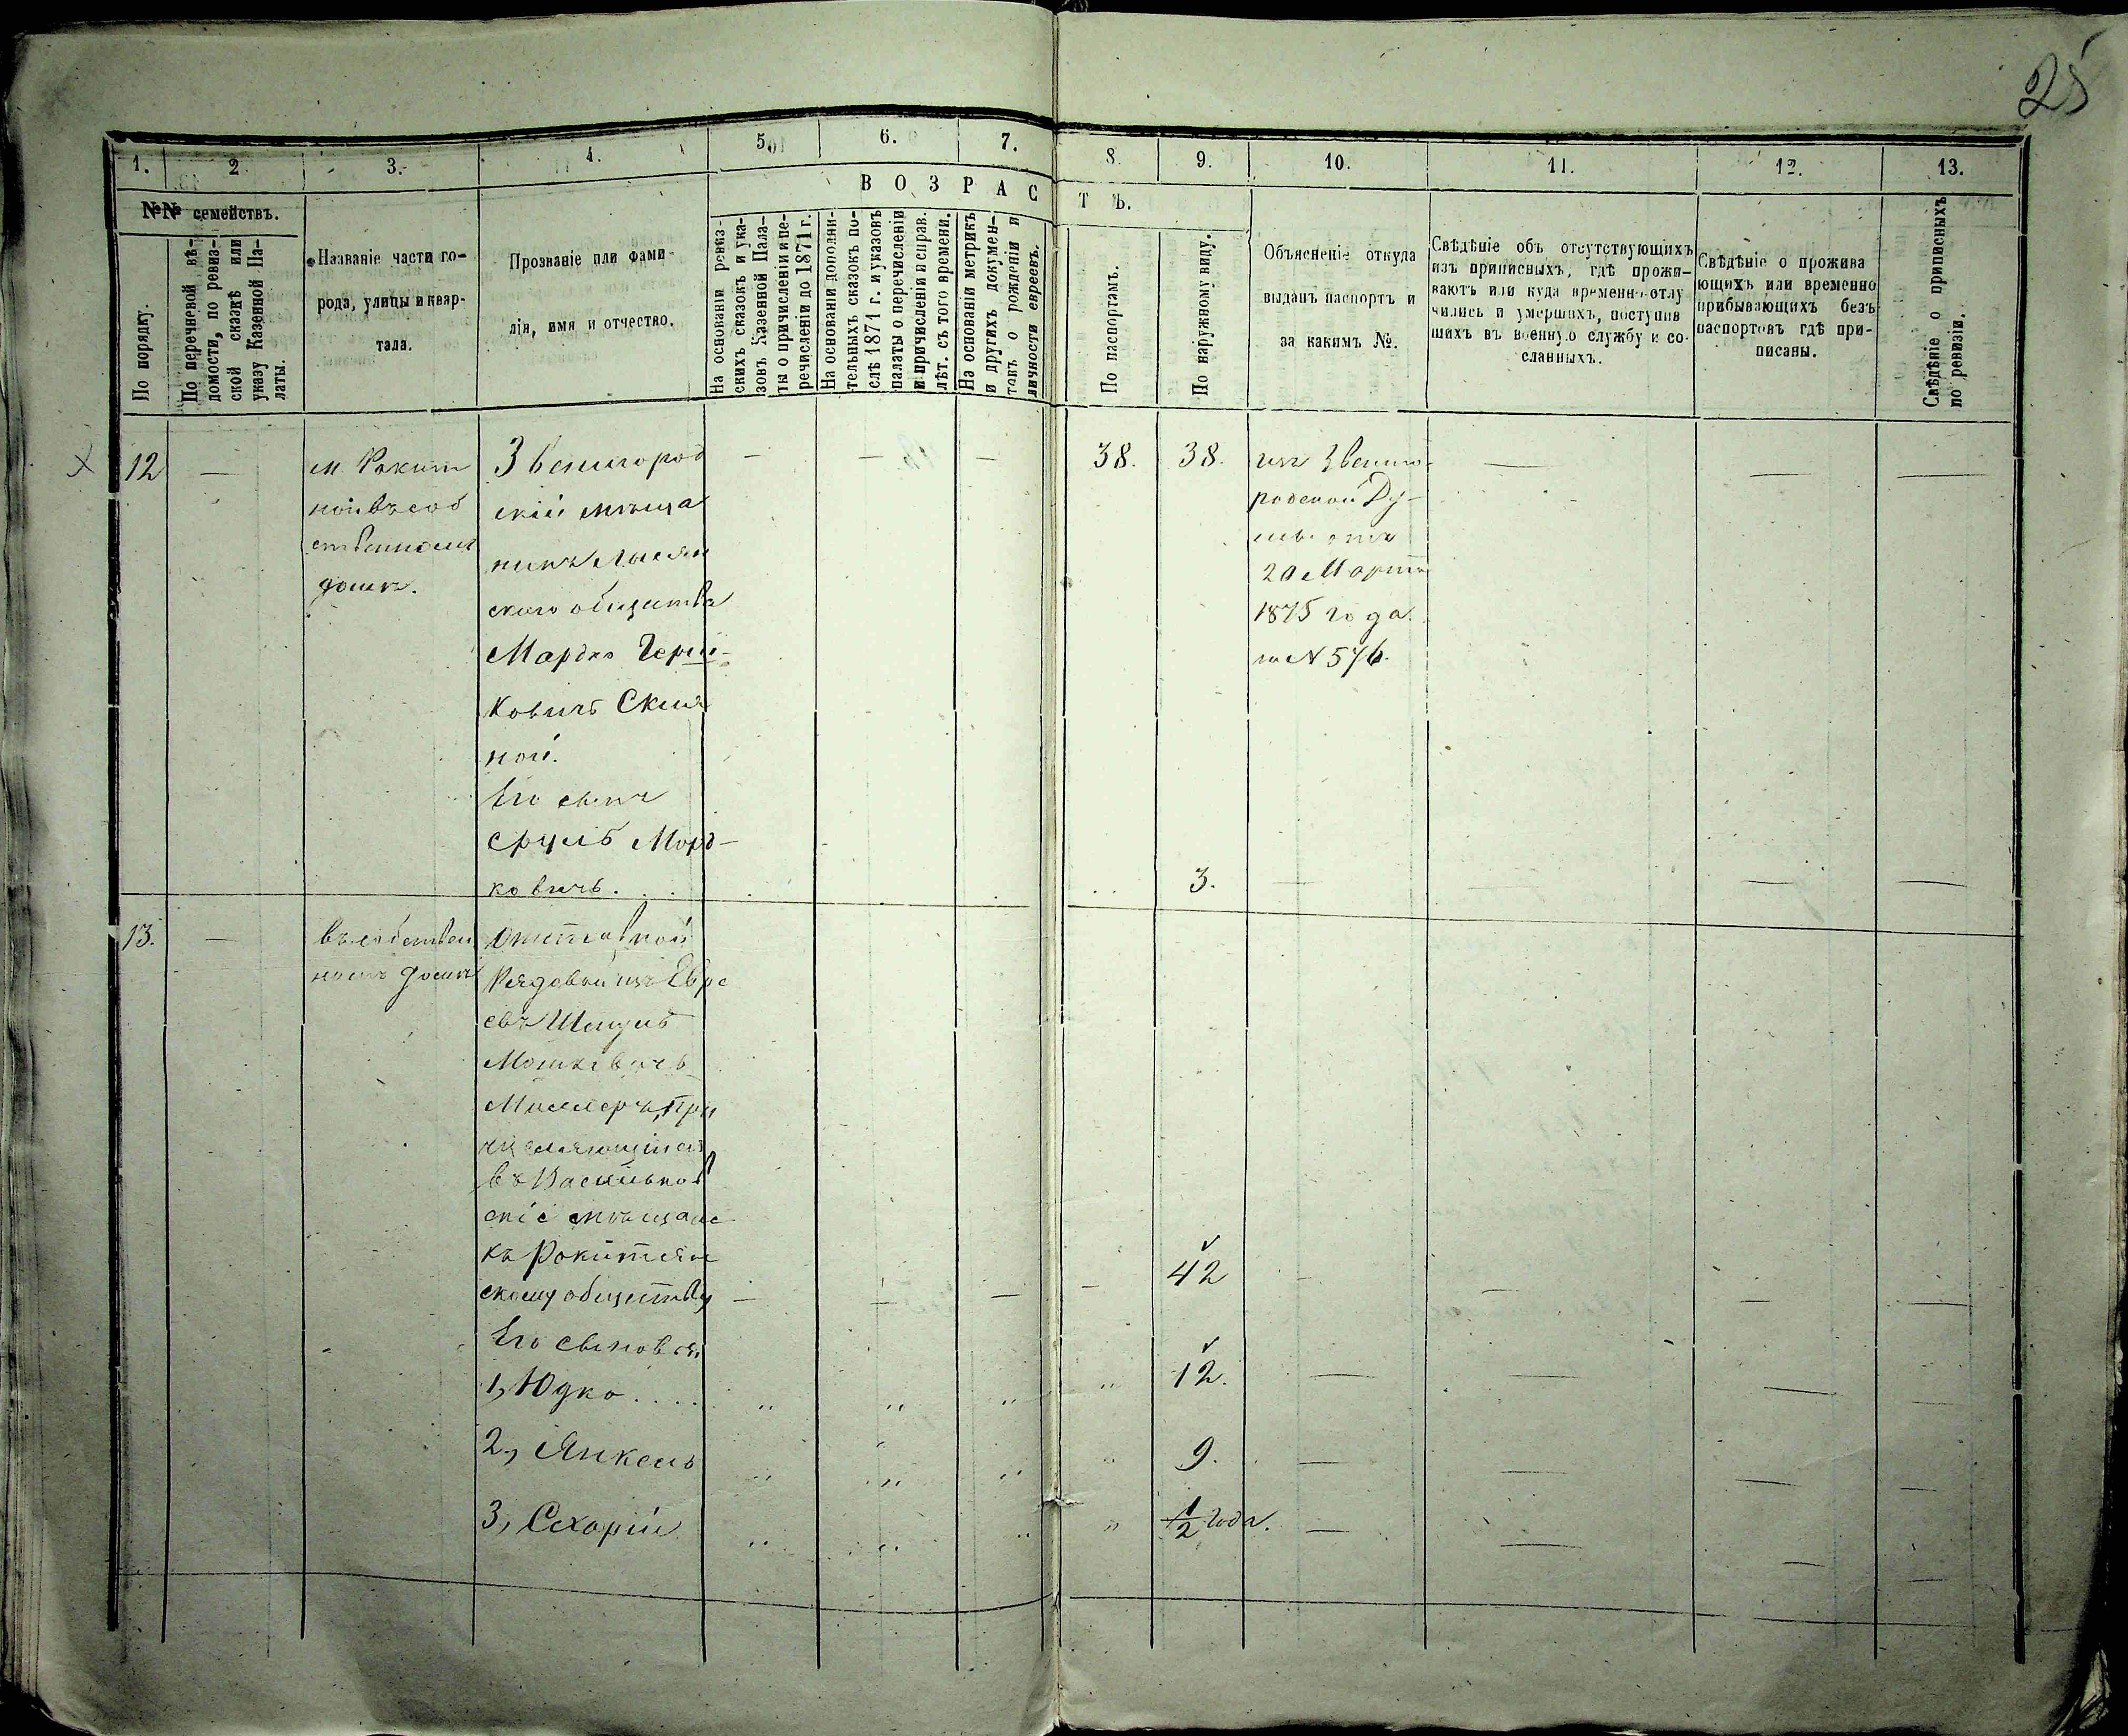 25
1. 2 3. 4. 5. 6. 7. 8. 9. 10. 11. 12. 13.
В О З Р А С Т Ъ.
№№ семействъ.
По порядку.
По перечневой вѣ-
домости, по ревиз-
ской сказкѣ или
указу Казенной Па-
латы.
Названіе части го-
рода, улицы и квар-
тала.
Прозваніе или фами-
лія, имя и отчество.
На основаніи ревиз-
скихъ сказокъ и ука-
зовъ Казенной Пала-
ты о причисленіи и пе-
речисленіи до 1871 г.
На основаніи дополни-
тельныхъ сказокъ по-
слѣ 1871 г. и указовъ
палаты о перечисленіи
и причисленіи и справ.
лѣт. съ того времени.
На основаніи метрикъ
и другихъ докумен-
товъ о рожденіи и
личности евреевъ.
По паспортамъ.
По наружному виду.
Объясненіе откуда
выданъ паспортъ и
за какимъ №.
Свѣдѣніе объ отсутствующихъ
изъ приписныхъ, гдѣ прожи-
ваютъ или куда временно отлу
чились и умершихъ, поступив
шихъ въ военную службу и со-
сланныхъ.
Свѣдѣніе о прожива
ющихъ или временно
прибывающихъ безъ
паспортовъ гдѣ при-
писаны.
Свѣдѣніе о приписныхъ
по ревизіи.
12 —
м. Ракит
ной въ соб
ственномъ
домѣ.
Звенигород
скій мѣща
нинъ Лысян
скаго общества
Мордко Герш-
ковичъ
ной.
Его сынъ
Сруль Морд-
ковичъ. . .
— — — 38. 38.
изъ Звениго-
родской Ду-
мы отъ
20 Марта
1875 года
за № 576.
— — —
3. — — — —
13. —
въ собствен
номъ домѣ
Отставной
Рядовой изъ Евре
евъ
Мошковичъ
Миллеръ, при
числяющійся
въ Васильков
скіе мѣщане
къ Рокитян
скому обществу
— — — — 42 — — — —
Его сыновья
1, Юдко . . . . „ „ „ „ 12. — — —
2, Янкель „ „ „ „ 9. — — — —
3, Схарій „ „ „ „ 1/2 года. — — — —